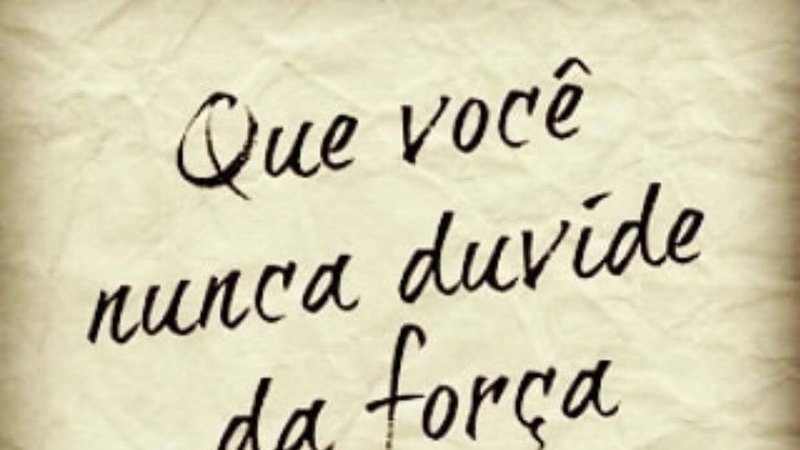 Que você
nunca duvide
da força